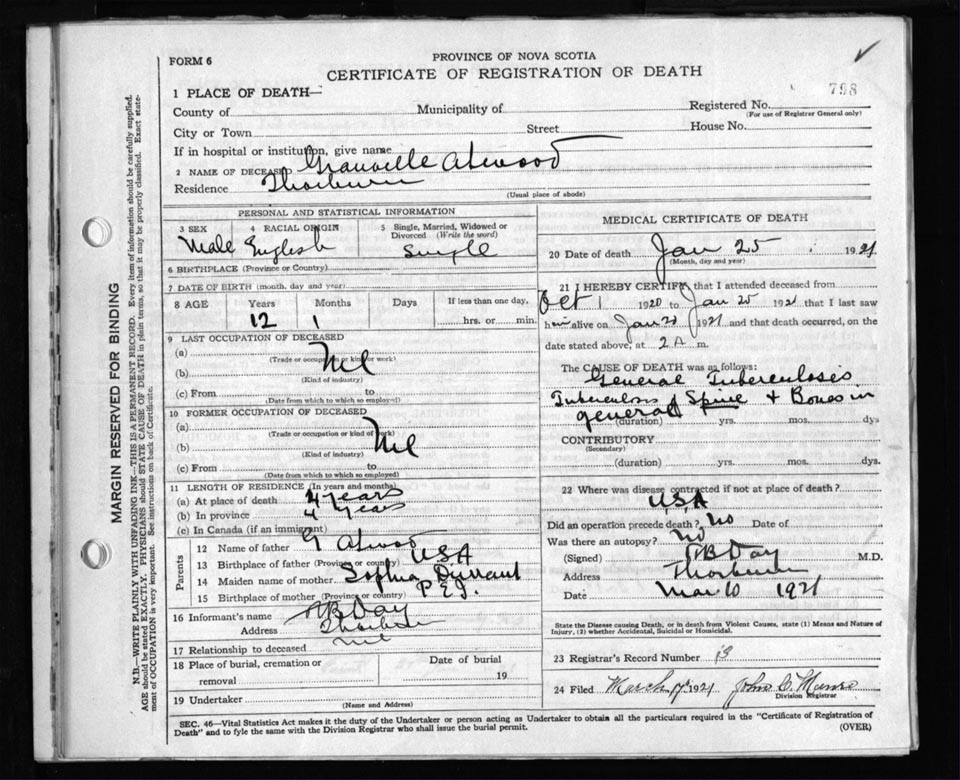 FORM 6
PROVINCE OF NOVA SCOTIA
CERTIFICATE OF REGISTRATION OF DEATH
798
1 PLACE OF DEATH—
County of Municipality of Registered No.
(For use of Registrar General only)
City or Town Street House No.
If in hospital or institution, give name
2 NAME OF DECEASED Granville Atwood
Residence Thorburn
(Usual place of abode)
PERSONAL AND STATISTICAL INFORMATION
3 SEX 4 RACIAL ORIGIN 5 Single, Married, Widowed or Divorced (Write the word)
Male English Single
6 BIRTHPLACE (Province or Country)
7 DATE OF BIRTH (month, day and year)
8 AGE Years Months Days If less than one day,
12 1 hrs. or min.
9 LAST OCCUPATION OF DECEASED
(a) Nil
(Trade or occupation or kind of work)
(b)
(Kind of industry)
(c) From to
(Date from which to which so employed)
10 FORMER OCCUPATION OF DECEASED
(a)
(Trade or occupation or kind of work)
(b) Nil
(Kind of industry)
(c) From to
(Date from which to which so employed)
11 LENGTH OF RESIDENCE (In years and months)
(a) At place of death 4 years
(b) In province 4 years
(c) In Canada (if an immigrant)
Parents
12 Name of father G Atwood
13 Birthplace of father (Province or country) USA
14 Maiden name of mother Sophia
15 Birthplace of mother (Province or country) P E I.
16 Informant's name Day
Address Thorburn
17 Relationship to deceased nil
18 Place of burial, cremation or removal Date of burial
19
19 Undertaker
(Name and Address)
MEDICAL CERTIFICATE OF DEATH
20 Date of death Jan 25 1921
(Month, day and year)
21 I HEREBY CERTIFY that I attended deceased from
Oct 1 1920 to Jan 25 1921 that I last saw
him alive on Jan 1921 and that death occurred, on the
date stated above, at 2 A m.
The CAUSE OF DEATH was as follows:
General Tuberculosis
Tuberculosis of Spine + Bones in
general
(duration) yrs. mos. dys
CONTRIBUTORY
(Secondary)
(duration) yrs. mos. dys.
22 Where was disease contracted if not at place of death?
USA
Did an operation precede death? No Date of
Was there an autopsy? No
(Signed) Day M.D.
Address Thorburn
Date Mar 10 1921
State the Disease causing Death, or in death from Violent Causes, state (1) Means and Nature of
Injury, (2) whether Accidental, Suicidal or Homicidal.
23 Registrar's Record Number 13
24 Filed March 1921 John C. Munro
Division Registrar
SEC. 46—Vital Statistics Act makes it the duty of the Undertaker or person acting as Undertaker to obtain all the particulars required in the "Certificate of Registration of
Death" and to fyle the same with the Division Registrar who shall issue the burial permit. (OVER)
MARGIN RESERVED FOR BINDING
N.B.—WRITE PLAINLY WITH UNFADING INK—THIS IS A PERMANENT RECORD. Every item of information should be carefully supplied.
AGE should be stated EXACTLY. PHYSICIANS should STATE CAUSE OF DEATH in plain terms, so that it may be properly classified. Exact state-
ment of OCCUPATION is very important. See instructions on back of Certificate.